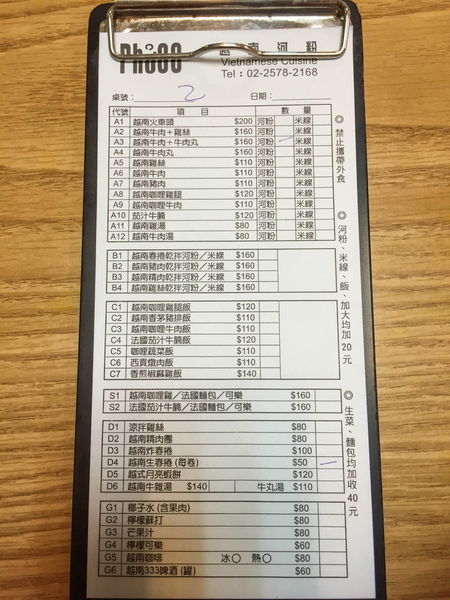 PhỏGO 越南河粉
Vietnamese Cuisine
Tel：02-2578-2168
桌號： 2 日期：
代號 項目 數量
A1 越南火車頭 $200 河粉 米線
A2 越南牛肉＋雞絲 $160 河粉 米線
A3 越南牛肉＋牛肉丸 $160 河粉 米線
A4 越南牛肉丸 $160 河粉 米線
A5 越南雞絲 $110 河粉 米線
A6 越南牛肉 $110 河粉 米線
A7 越南豬肉 $110 河粉 米線
A8 越南咖哩雞腿 $120 河粉 米線
A9 越南咖哩牛肉 $110 河粉 米線
A10 茄汁牛腩 $120 河粉 米線
A11 越南雞湯 $80 河粉 米線
A12 越南牛肉湯 $80 河粉 米線
B1 越南春捲乾拌河粉／米線 $160
B2 越南豬肉乾拌河粉／米線 $160
B3 越南精肉乾拌河粉／米線 $160
B4 越南雞絲乾拌河粉／米線 $160
C1 越南咖哩雞腿飯 $120
C2 越南香茅豬排飯 $110
C3 越南咖哩牛肉飯 $110
C4 法國茄汁牛腩飯 $120
C5 咖哩蔬菜飯 $110
C6 西貢燉肉飯 $110
C7 香煎椒麻雞飯 $140
S1 越南咖哩雞／法國麵包／可樂 $160
S2 法國茄汁牛腩／法國麵包／可樂 $160
D1 涼拌雞絲 $80
D2 越南精肉團 $80
D3 越南炸春捲 $100
D4 越南生春捲 (每卷) $50
D5 越式月亮蝦餅 $120
D6 越南牛雜湯 $140 牛丸湯 $110
G1 椰子水 (含果肉) $80
G2 檸檬蘇打 $80
G3 芒果汁 $80
G4 檸檬可樂 $60
G5 越南咖啡 冰○ 熱○ $80
G6 越南333啤酒 (罐) $60
◎禁止攜帶外食
◎河粉、米線、飯、加大均加20元
◎生菜、麵包均加收40元